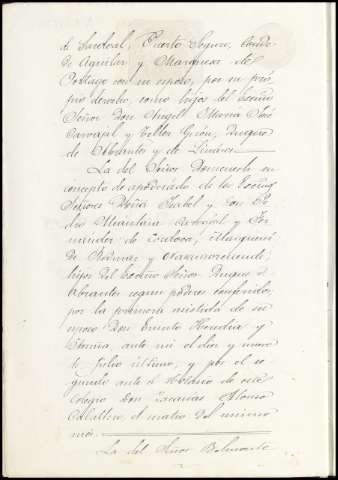 de Sandoval, Puerto Seguro, Conde
de Aguilar y Marquesa de
Portago con su esposo, por su pro
pio derecho, como hijos del Excmo
Señor Don Angel Maria José
Carvajal y Tellez Girón, Duque
de Abrantes y de Linares
La del Señor Domenech en
concepto de apoderado de los Excmos
Señores Doña Isabel y Don Pe
dro Alcántara Carvajal y Fer
nández de Córdova,
de
hijos del Excmo Señor Duque de
Abrantes segun poderes conferidos,
por la primera asistida de su
esposo Don Benito Heredia y
ante mi el diez y nueve
de Julio último, y por el se
gundo ante el Notario de este
Colegio Don Zacarias Alonso
Caballero, el cuatro del mismo
mes.
La del Señor Belmonte